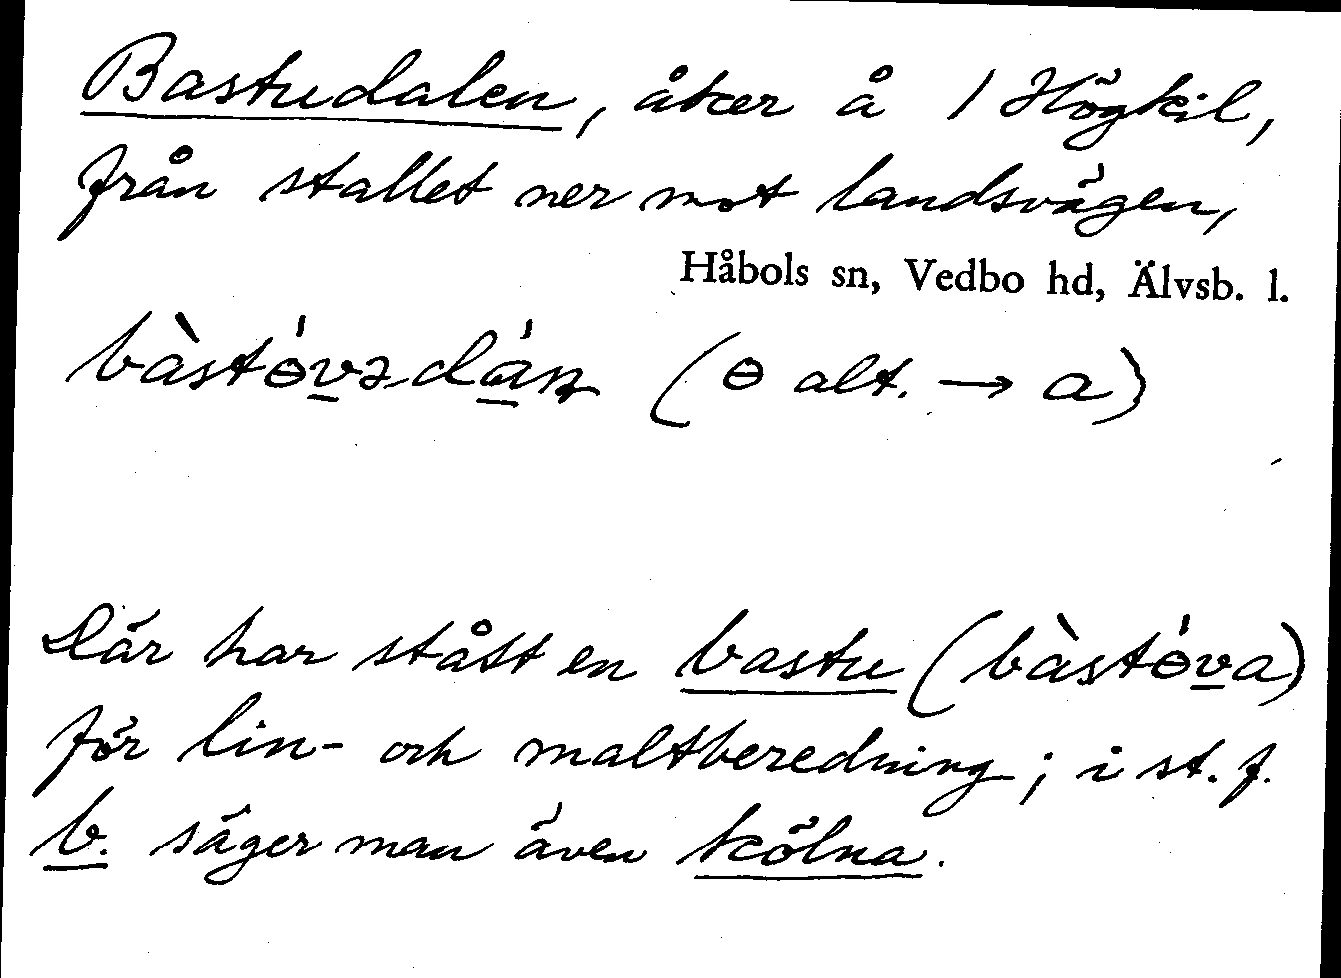 Bastudalen, åker å 1 Högkil,
från stallet ner mot landsvägen,
Håbols sn, Vedbo hd, Älvsb. l.
bàstɵ́vədán (ɵ alt. → a)
Där har stått en bastu (bàstɵ́va)
för lin- och maltberedning; i st. f.
b. säger man även kölna.